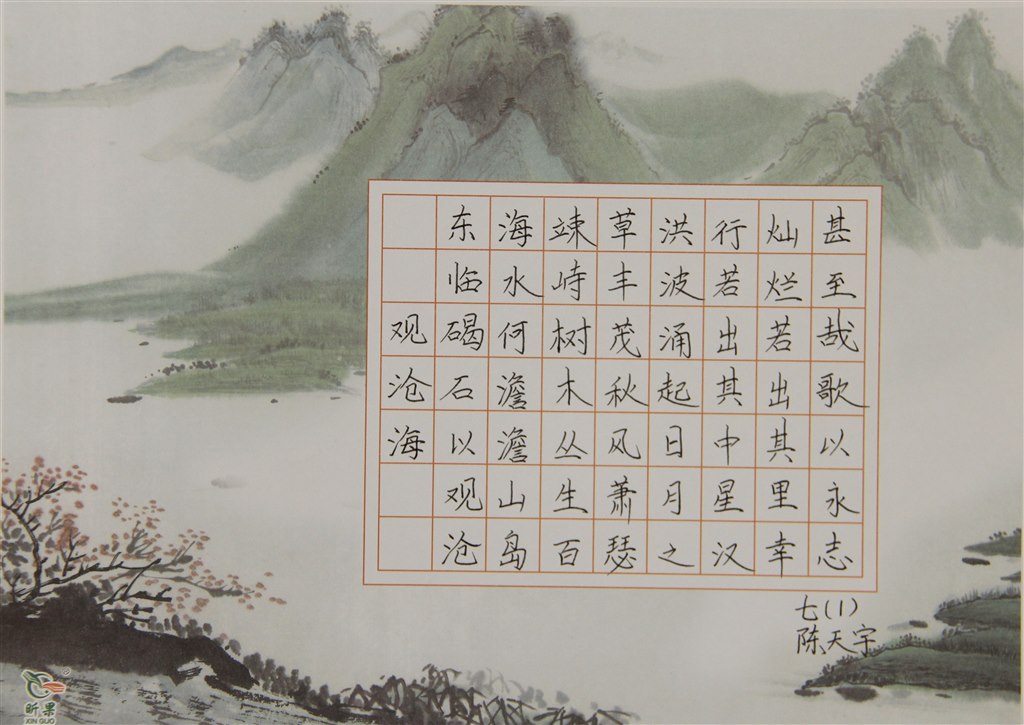 观沧海
东临碣石以观沧
海水何澹澹山岛
竦峙树木丛生百
草丰茂秋风萧瑟
洪波涌起日月之
行若出其中星汉
灿烂若出其里幸
甚至哉歌以永志
七(1)
陈天宇
昕果
XIN GUO